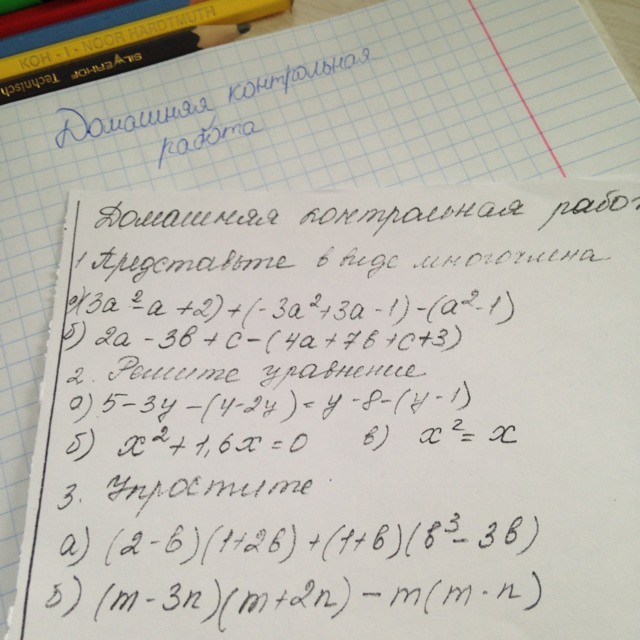 KOH-I-NOOR HARDTMUTH
SILWERHOF Technisch
Домашняя контрольная
работа
Домашняя контрольная работ
1 Представьте в виде многочлена
а) (3a²-a+2)+(-3a²+3a-1)-(a²-1)
б) 2a-3b+c-(4a+7b+c+3)
2. Решите уравнение
а) 5-3y-(4-2y)=y-8-(y-1)
б) x²+1,6x=0 в) x²=x
3. Упростите
а) (2-b)(1+2b)+(1+b)(b³-3b)
б) (m-3n)(m+2n)-m(m-n)